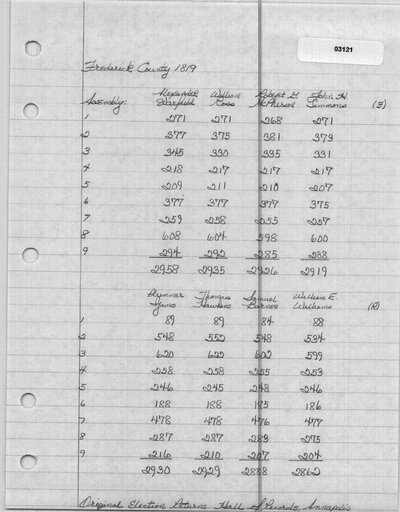 03121
Frederick County 1819
Alexander William Robert G. John H.
Assembly: Warfield Ross McPherson Simmons (F)
1 271 271 268 271
2 377 375 381 373
3 345 330 335 331
4 218 217 217 217
5 209 211 210 207
6 377 377 377 375
7 259 258 255 257
8 608 604 598 600
9 294 292 285 288
2958 2935 2926 2919
Plummer Thomas Samuel William E.
Ijams Hawkins Barnes Williams (R)
1 89 89 84 88
2 548 552 548 534
3 620 622 602 599
4 258 258 255 253
5 246 245 248 246
6 188 188 185 186
7 478 478 476 477
8 287 287 283 275
9 216 210 207 204
2930 2929 2888 2862
Original Election Returns. Hall of Records, Annapolis